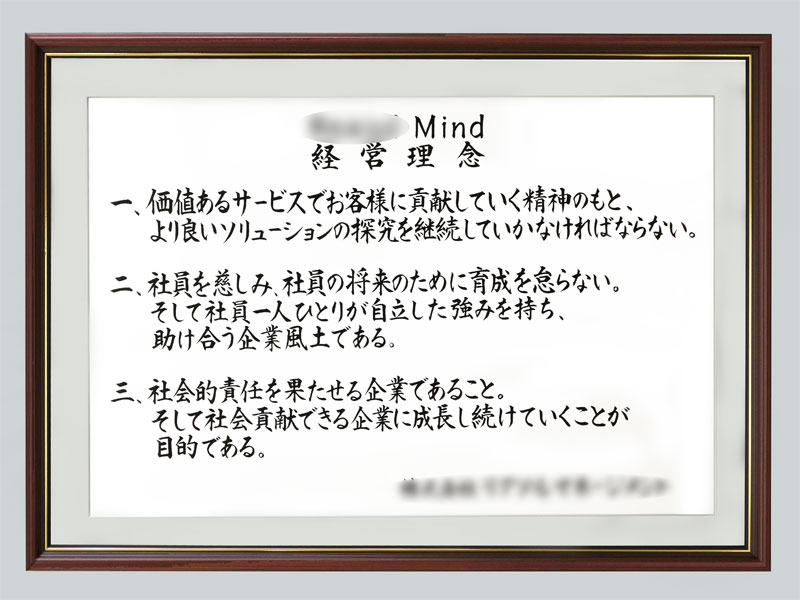 Mind
経営理念
一、価値あるサービスでお客様に貢献していく精神のもと、
より良いソリューションの探究を継続していかなければならない。
二、社員を慈しみ、社員の将来のために育成を怠らない。
そして社員一人ひとりが自立した強みを持ち、
助け合う企業風土である。
三、社会的責任を果たせる企業であること。
そして社会貢献できる企業に成長し続けていくことが
目的である。